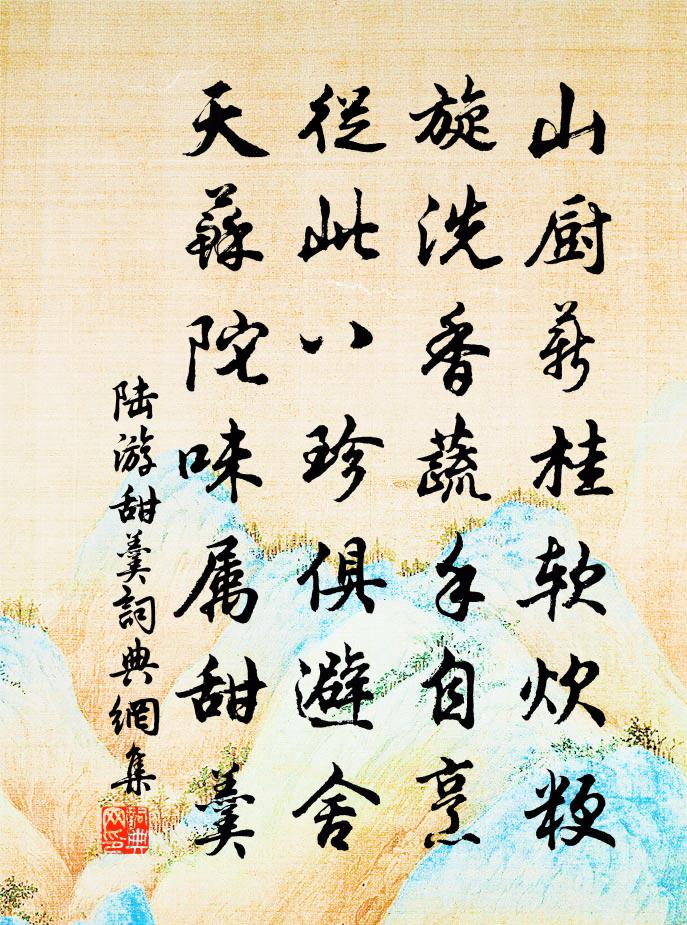 山厨薪桂软炊粳
旋洗香蔬手自烹
從此八珍俱避舍
天蘇陀味属甜羹
陆游甜羹詞典網集
詞典网印